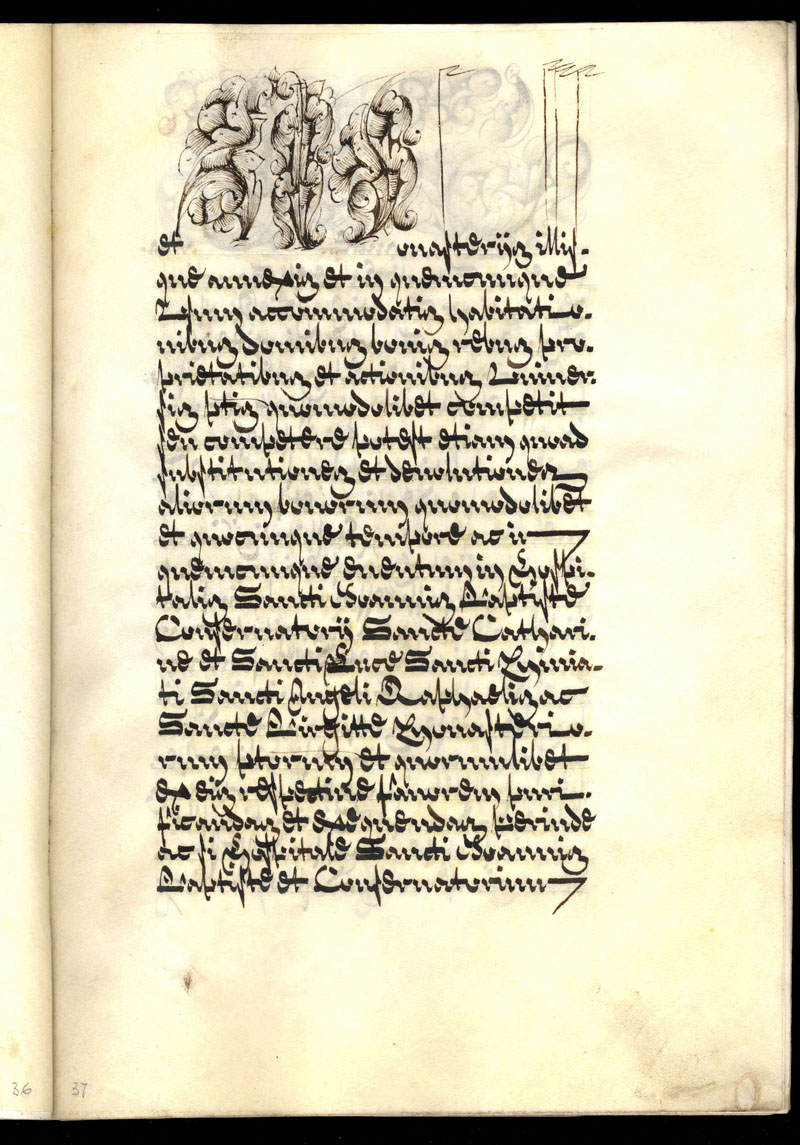 et M onasterijs illis-
que annexis et in quemcunque
Usum accommodatis habitatio-
nibus domibus bonis rebus pro-
prietatibus et actionibus Univer-
sis ptis quomodolibet competit
seu competere potest etiam quoad
substitutiones et devolutiones
aliorum bonorum quomodolibet
et quocunque tempore ac in
quemcunque eventum in Hospi-
talis Sancti Joannis Baptiste
Conservatorij Sancte Cathari-
ne et Sancti Luce Sancti Minia-
ti Sancti Angeli Raphaelis ac
Sancte Birgitte Monasterio-
rum ptorum et quorumlibet
ex eis respective favorem puri-
ficandas et exequendas perinde
ac si Hospitale Sancti Joannis
Baptiste et Conservatorium
36 37